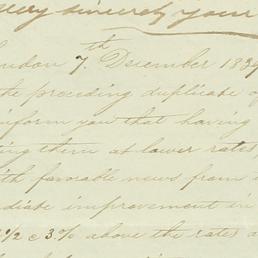 Very sincerely your
London 7th December 1839
the preceding duplicate of
inform you that having
ing them at lower rates
ith favorable news from
diate improvement in
1/2 @ 3% above the rates a